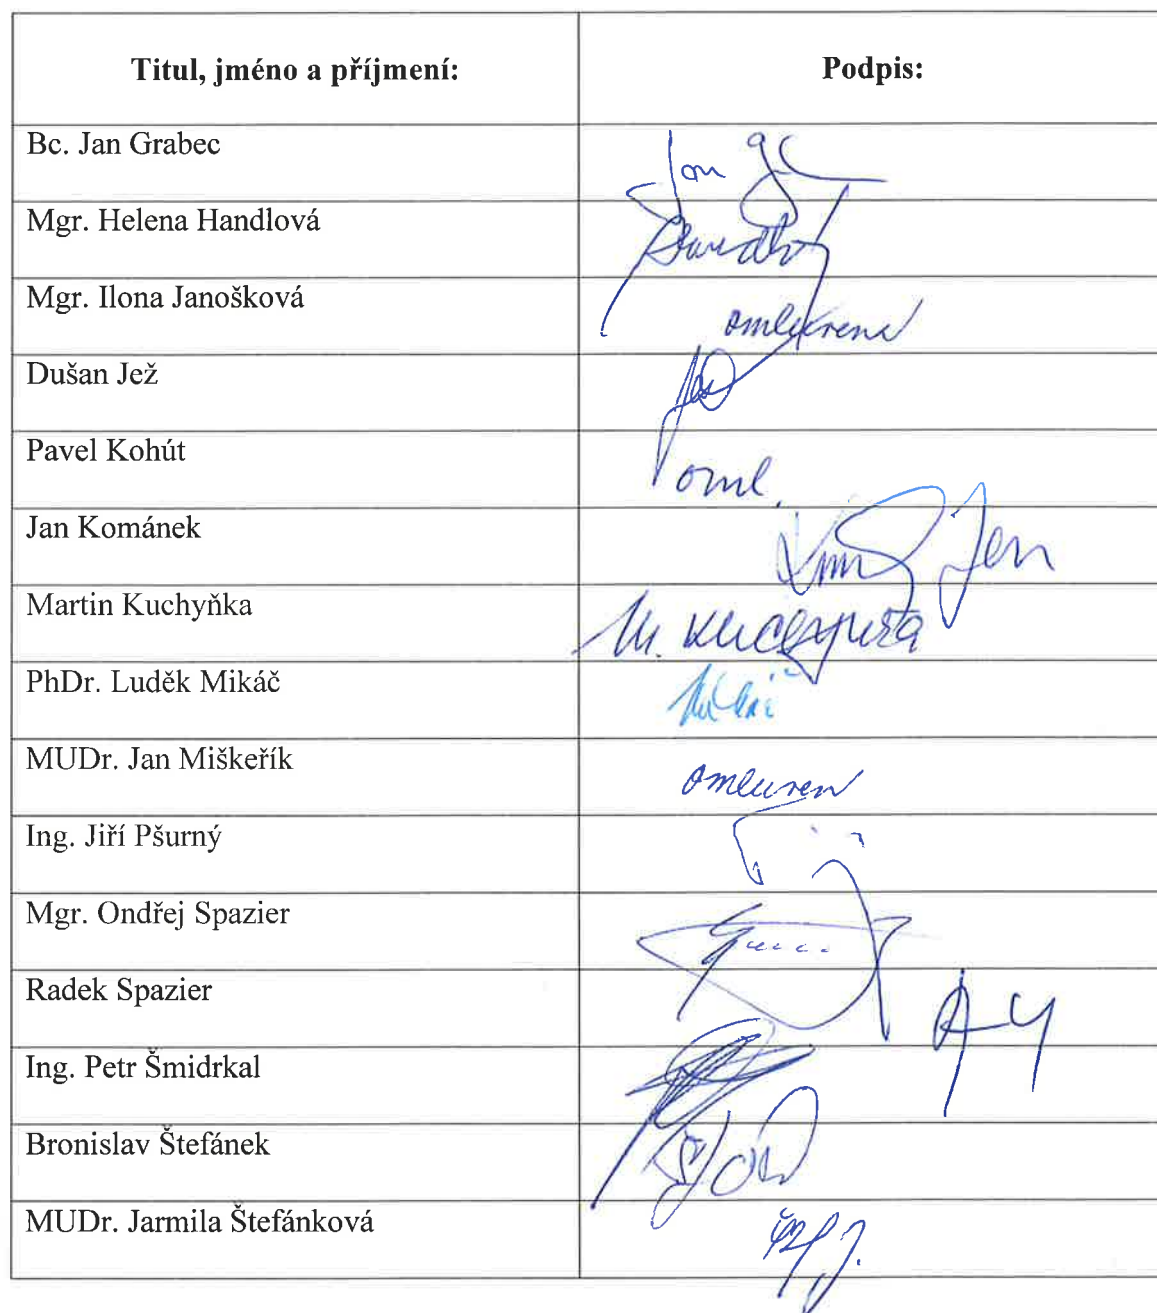 Titul, jméno a příjmení: Podpis:
Bc. Jan Grabec Jan
Mgr. Helena Handlová
Mgr. Ilona Janošková omluvena
Dušan Jež
Pavel Kohút oml.
Jan Kománek Jan
Martin Kuchyňka M. Kuchyňka
PhDr. Luděk Mikáč Mikáč
MUDr. Jan Miškeřík omluven
Ing. Jiří Pšurný
Mgr. Ondřej Spazier
Radek Spazier
Ing. Petr Šmidrkal
Bronislav Štefánek
MUDr. Jarmila Štefánková